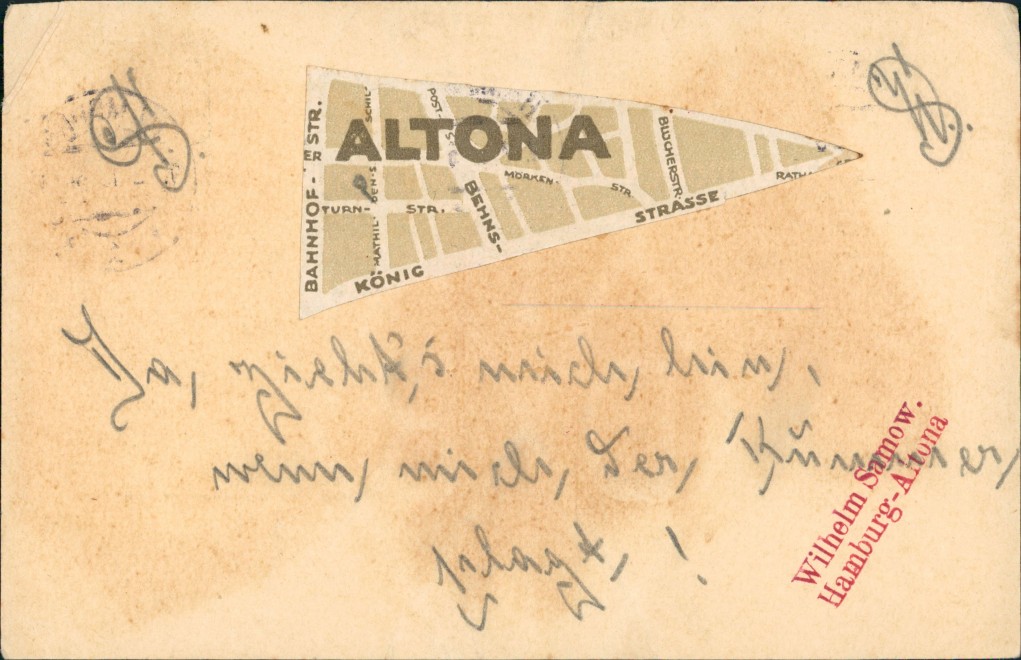 ALTONA
BAHNHOF-
STR.
SCHIL-
POST-
BLÜCHERSTR.
MÖRKEN-
STR.
BEHNS-
TURN-
STR.
MATHIL-
DEN-S
STRASSE
KÖNIG
Da, zieht's mich hin,
wenn mich der Kummer
plagt!
Wilhelm Samow.
Hamburg-Altona